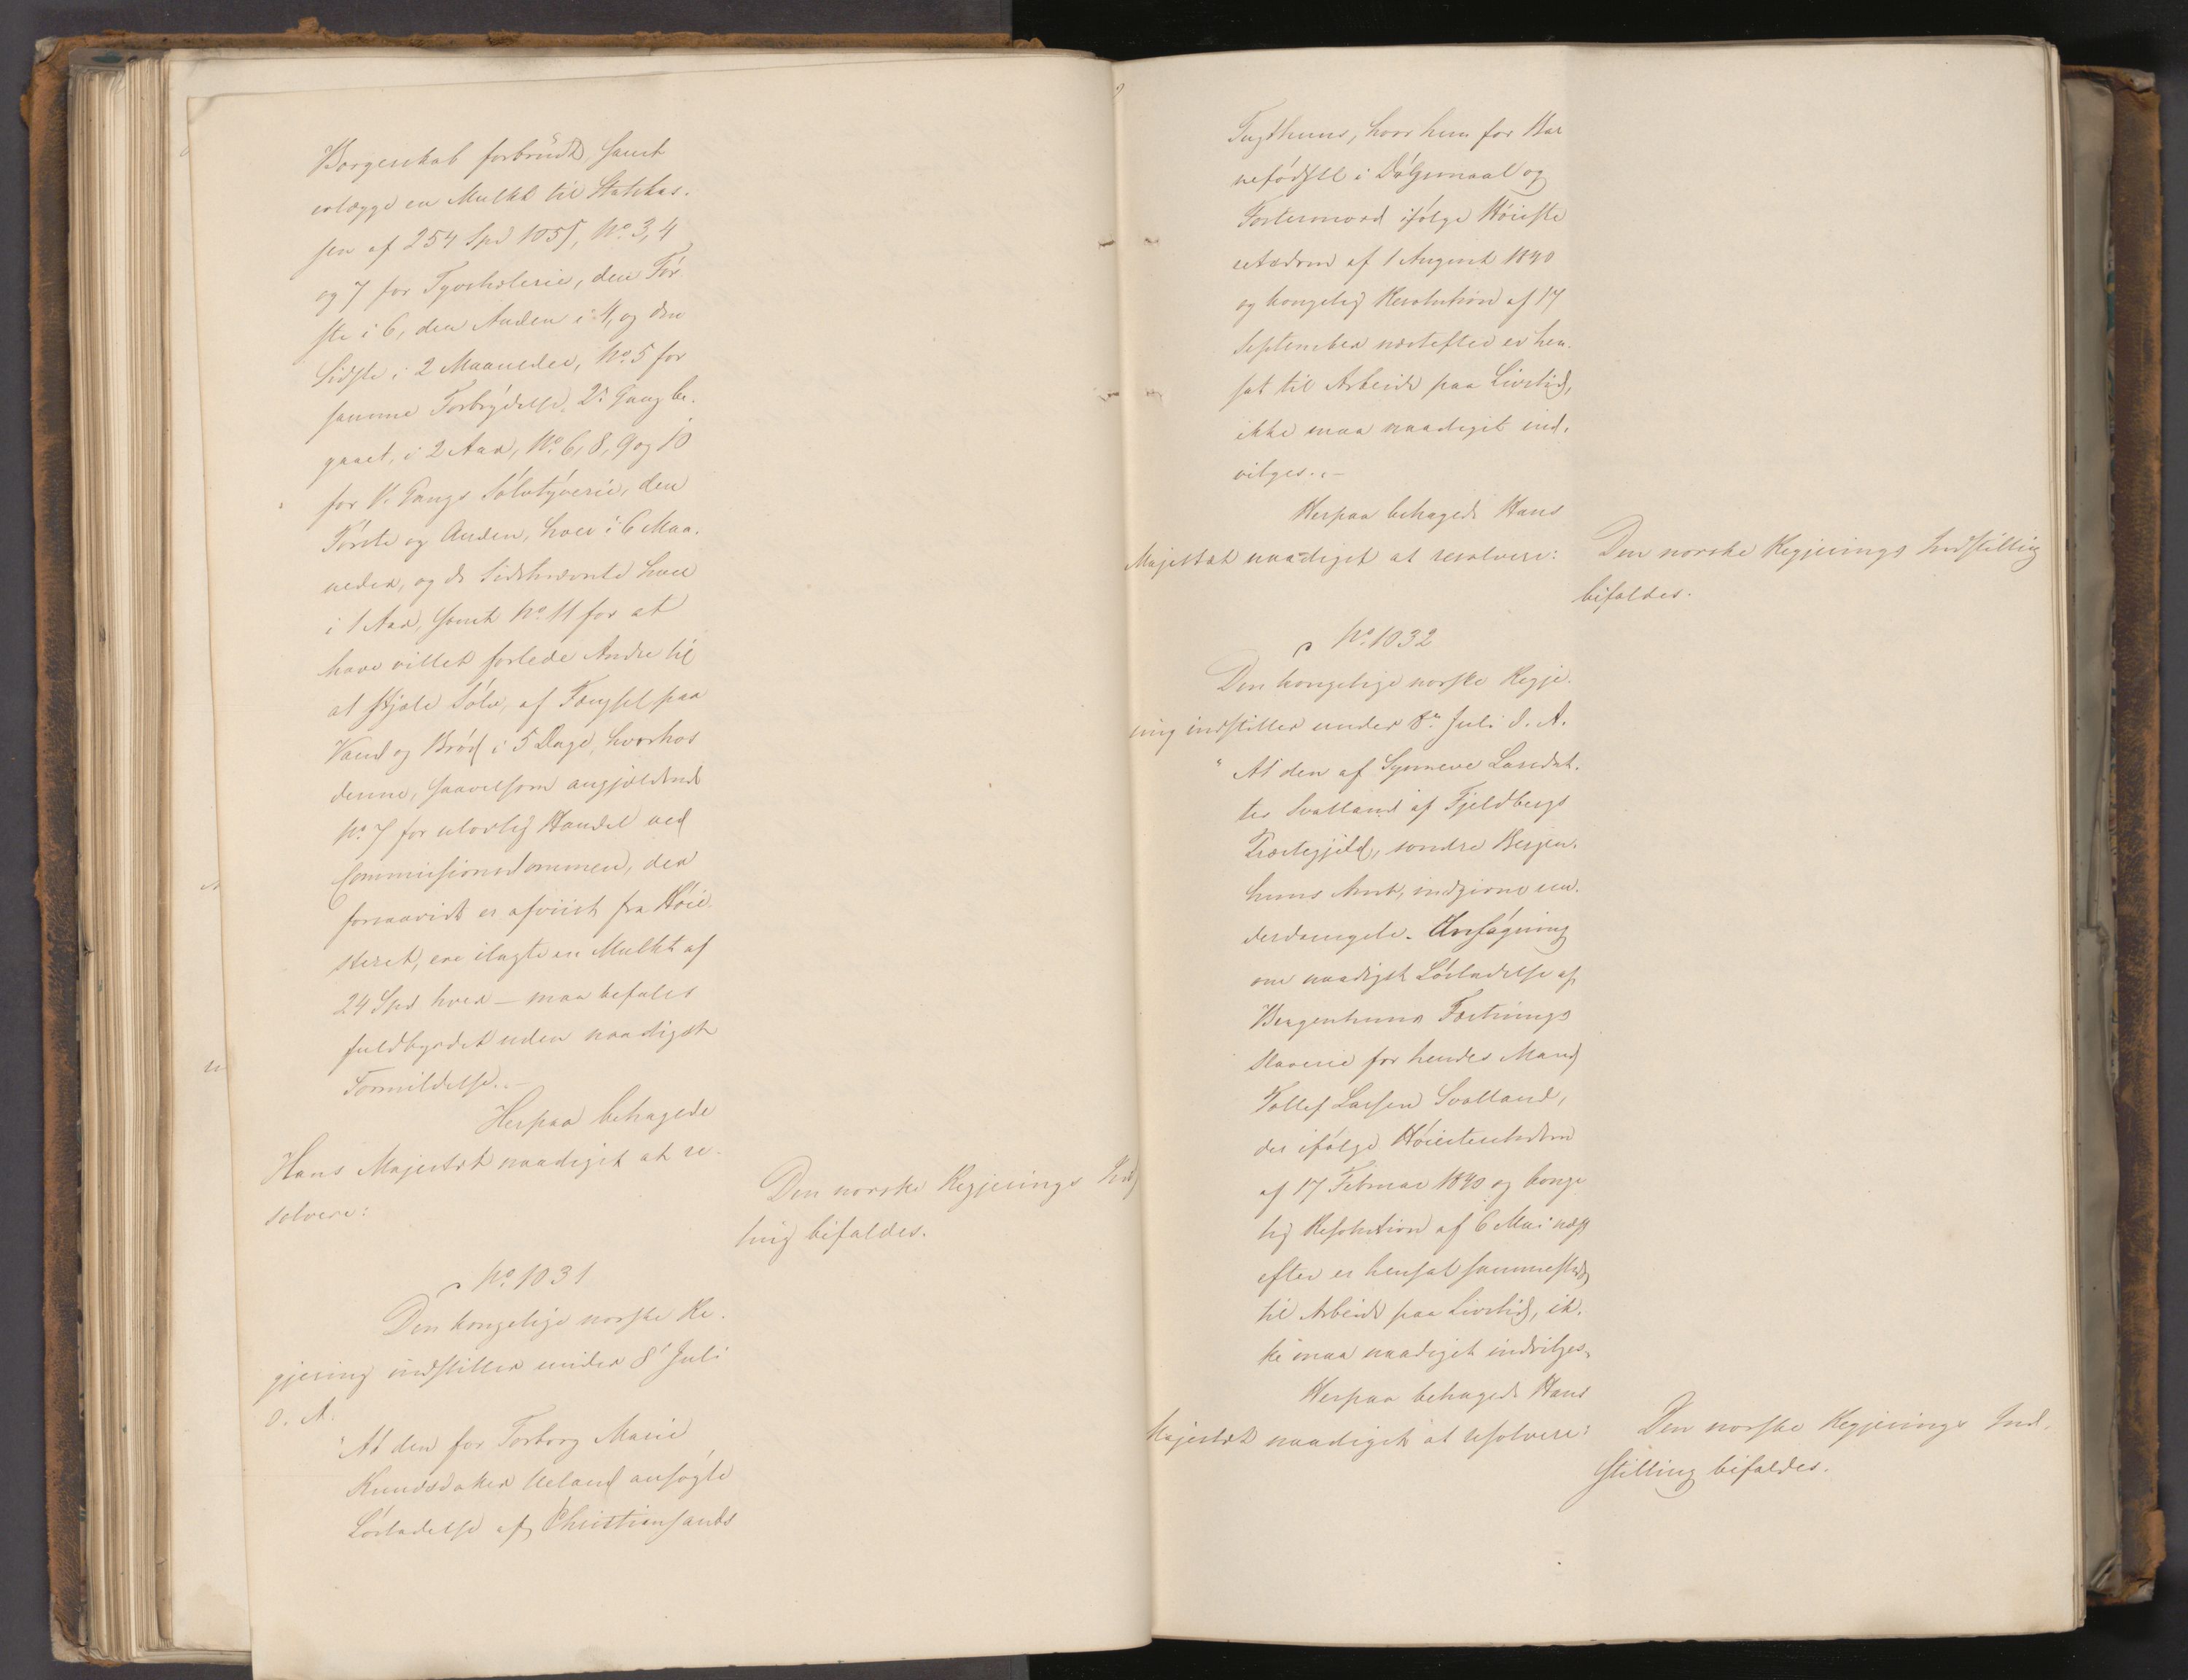 Borgerskab forbrudt, samt
erlægge en Mulkt til Statskas-
sen af 254 Spd 105ß, No 3, 4
og 7 for Tyvshæleri, den För
ste i 6, den Anden i 4, og den
Sidste i 2 Maaneder, No 5 for
samme Forbrydelse 2n Gang be-
gaaet, i 2 Aar, No 6, 8, 9 og 10
for 1. Gangs Sölvtyverie, den
Förste og Anden, hver i 6 Maa-
neder, og de Sidstnævnte hver
i 1 Aar, samt No 11 for at
have villet forlede Andre til
at stjæle Sölv, af Fængsel paa
Vand og Bröd i 5 Dage, hvorhos
denne, saavelsom angjældende
No 7 for ulovlig Handel ved
Commissionsdommen, der
forsaavidt er afviist fra Höie-
steret, ere ilagte en Mulkt af
24 Spd hver – maa befales
fuldbyrdet uden naadigst
Formildelse. –
Herpaa behagede
Hans Majestæt naadigst at re-
solvere:
Den norske Regjerings Ind
ling bifaldes.
No 1031
Den kongelige norske Re-
gjering indstiller under 8 Juli
d. A.
"At den for Torborg Marie
Knudsdatter Ueland ansögte
Lösladelse af Christiansands
Tugthuus, hvor hun for Bar
nefödsel i Dölgsmaal og
Fostermord ifölge Höieste
retsdom af 1 August 1840
og kongelig Resolution af 17
September næstefter er hen-
sat til Arbeide paa Livstid,
ikke maa naadigst ind-
vilges. –
Herpaa behagede Hans
Majestæt naadigst at resolvere:
Den norske Regjerings Indstilling
bifaldes.
No 1032
Den kongelige norske Regje-
ring indstiller under 8n Juli d. A.
"At den af Synneve Larsdat-
ter Svalland af Fjeldbergs
Præstegjeld, söndre Bergen-
huus Amt, indgivne un-
derdanigste Ansögning
om naadigst Lösladelse af
Bergenhuus Fæstnings
Slaverie for hendes Mand
Tollef Larsen Svalland,
der ifölge Höiesteretsdom
af 17 Februar 1840 og konge
lig Resolution af 6 Mai næst
efter er hensat sammesteds
til Arbeide paa Livstid, ik-
ke maa naadigst indvilges.
Herpaa behagede Hans
Majestæt naadigst at resolvere:
Den norske Regjerings Ind-
stilling bifaldes.